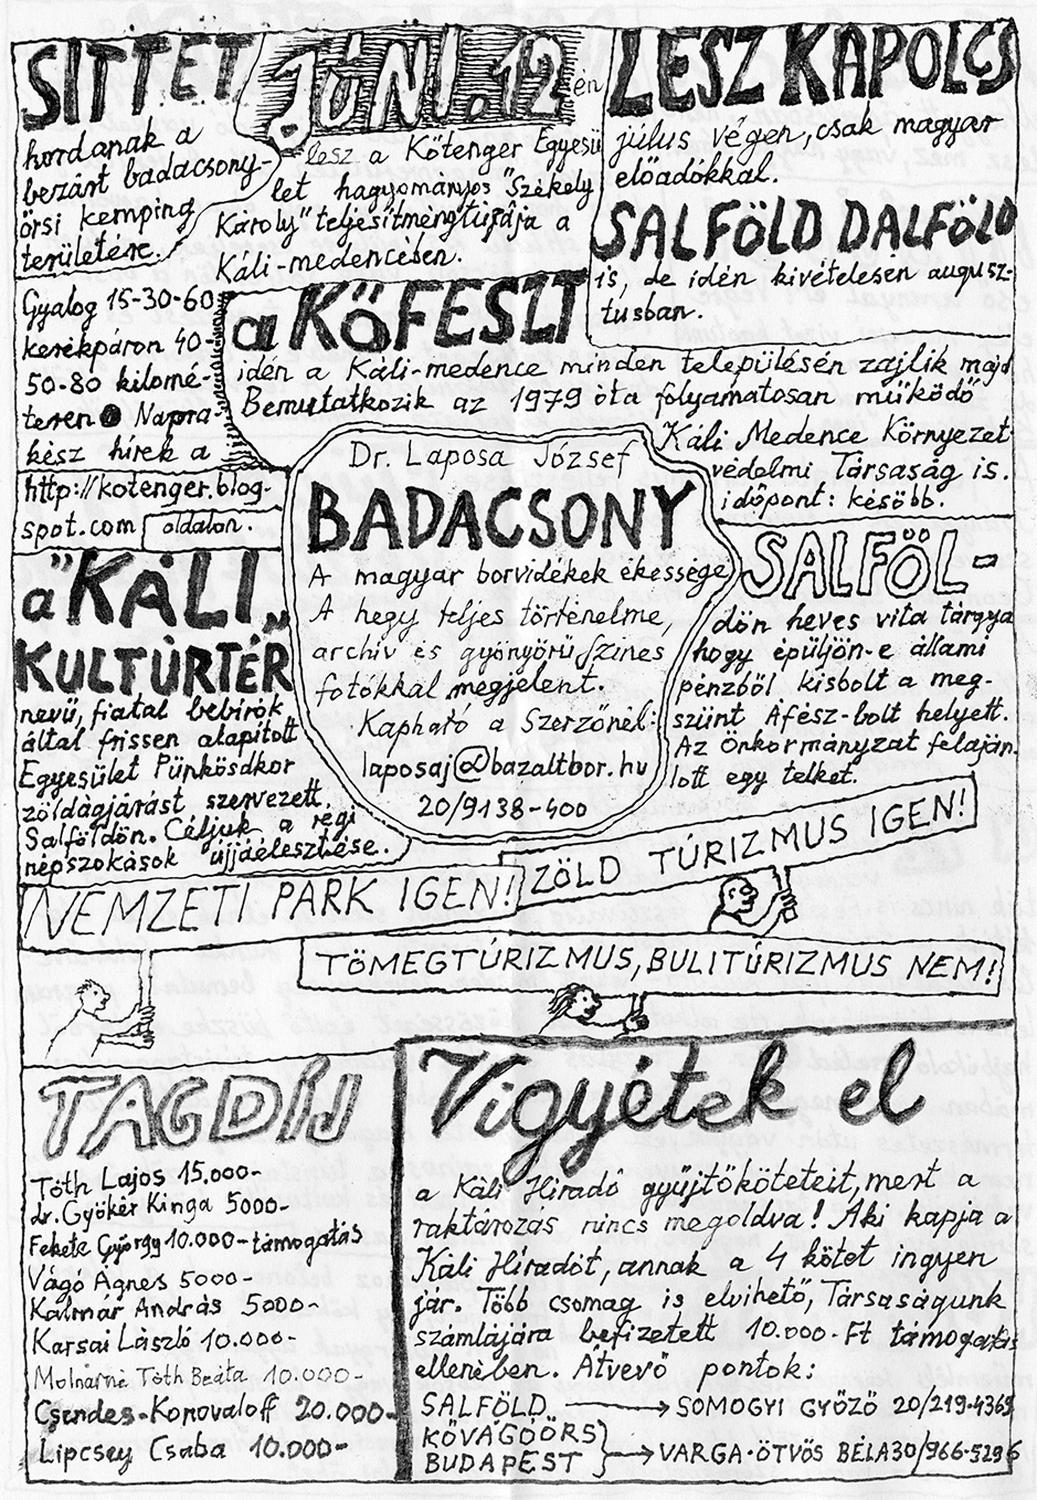 SITTET
hordanak a
bezárt badacsony-
örsi kemping
területére.
JÚNI. 12 én
lesz a Kőtenger Egyesü
let hagyományos "Székely
Károly" teljesítménytúrája a
Káli-medencében.
Gyalog 15-30-60
kerékpáron 40-
50-80 kilomé-
teren ● Napra-
kész hírek a
http://kotenger.blog-
spot.com oldalon.
LESZ KAPOLCS
július végén, csak magyar
előadókkal.
SALFÖLD DALFÖLD
is, de idén kivételesen augusz-
tusban.
a KŐFESZT
idén a Káli-medence minden településén zajlik majd
Bemutatkozik az 1979 óta folyamatosan működő
Káli Medence Környezet
védelmi Társaság is.
időpont: később.
Dr. Laposa József
BADACSONY
A magyar borvidékek ékessége
A hegy teljes történelme,
archív és gyönyörű színes
fotókkal megjelent.
Kapható a Szerzőnél:
laposaj@bazaltbor.hu
20/9138-400
a "KÁLI„
KULTÚRTÉR
nevű, fiatal bebírók
által frissen alapított
Egyesület Pünkösdkor
zöldágjárást szervezett
Salföldön. Céljuk a régi
népszokások újjáélesztése.
SALFÖL-
dön heves vita tárgya
hogy épüljön-e állami
pénzből kisbolt a meg-
szűnt Áfész-bolt helyett.
Az Önkormányzat felaján-
lott egy telket.
NEMZETI PARK IGEN!
ZÖLD TÚRIZMUS IGEN!
TÖMEGTÚRIZMUS, BULITÚRIZMUS NEM!
TAGDÍJ
Tóth Lajos 15.000-
dr. Gyökér Kinga 5000-
Fekete György 10.000- támogatás
Vágó Ágnes 5000-
Kálmár András 5000-
Karsai László 10.000-
Molnárné Tóth Beáta 10.000-
Csendes-Konovaloff 20.000-
Lipcsey Csaba 10.000-
Vigyétek el
a Káli Híradó gyűjtőköteteit, mert a
raktározás nincs megoldva! Aki kapja a
Káli Híradót, annak a 4 kötet ingyen
jár. Több csomag is elvihető, Társaságunk
számlájára befizetett 10.000.-Ft támogatás
ellenében. Átvevő pontok:
SALFÖLD → SOMOGYI GYŐZŐ 20/219-4369
KŐVÁGÓÖRS
BUDAPEST → VARGA-ÖTVÖS BÉLA 30/966-5296